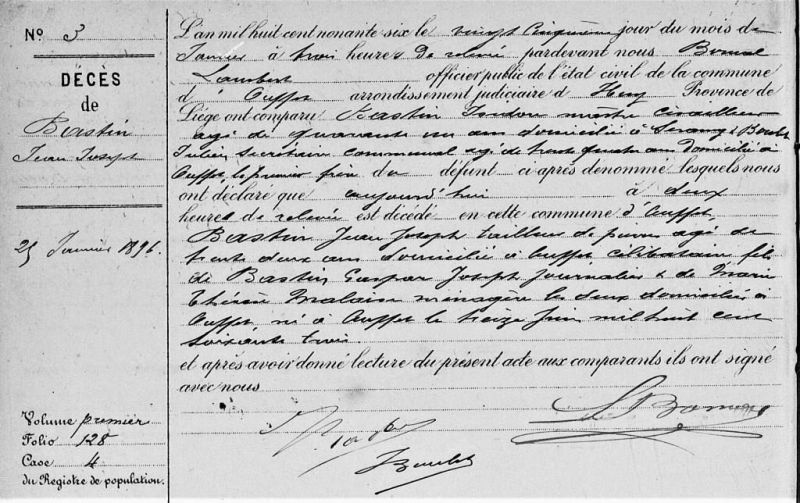 Nº 3
DÉCÈS
de
Bastin
Jean Joseph
25 Janvier 1896.
Volume premier
Folio 128
Case 4
du Registre de population.
L'an mil huit cent nonante six le vingt cinquième jour du mois de
Janvier à trois heures de relevée pardevant nous
Lambert officier public de l'état civil de la commune
d'Ouffet arrondissement judiciaire d Huy Province de
Liège ont comparu Bastin Isidore maître
agé de quarante un ans domicilié à Seraing &
Julien, Secrétaire communal agé de trente quatre ans domicilié à
Ouffet, le premier frère du défunt ci-après dénommé lesquels nous
ont déclaré que aujourd'hui à deux
heures de relevée est décédé en cette commune d'Ouffet,
Bastin Jean Joseph tailleur de pierres agé de
trente deux ans domicilié à Ouffet célibataire fils
de Bastin Gaspar Joseph journalier & de Marie
Thérèse Malaise ménagère les deux domiciliés à
Ouffet, né à Ouffet le treize Juin mil huit cent
soixante trois.
et après avoir donné lecture du présent acte aux comparants ils ont signé
avec nous